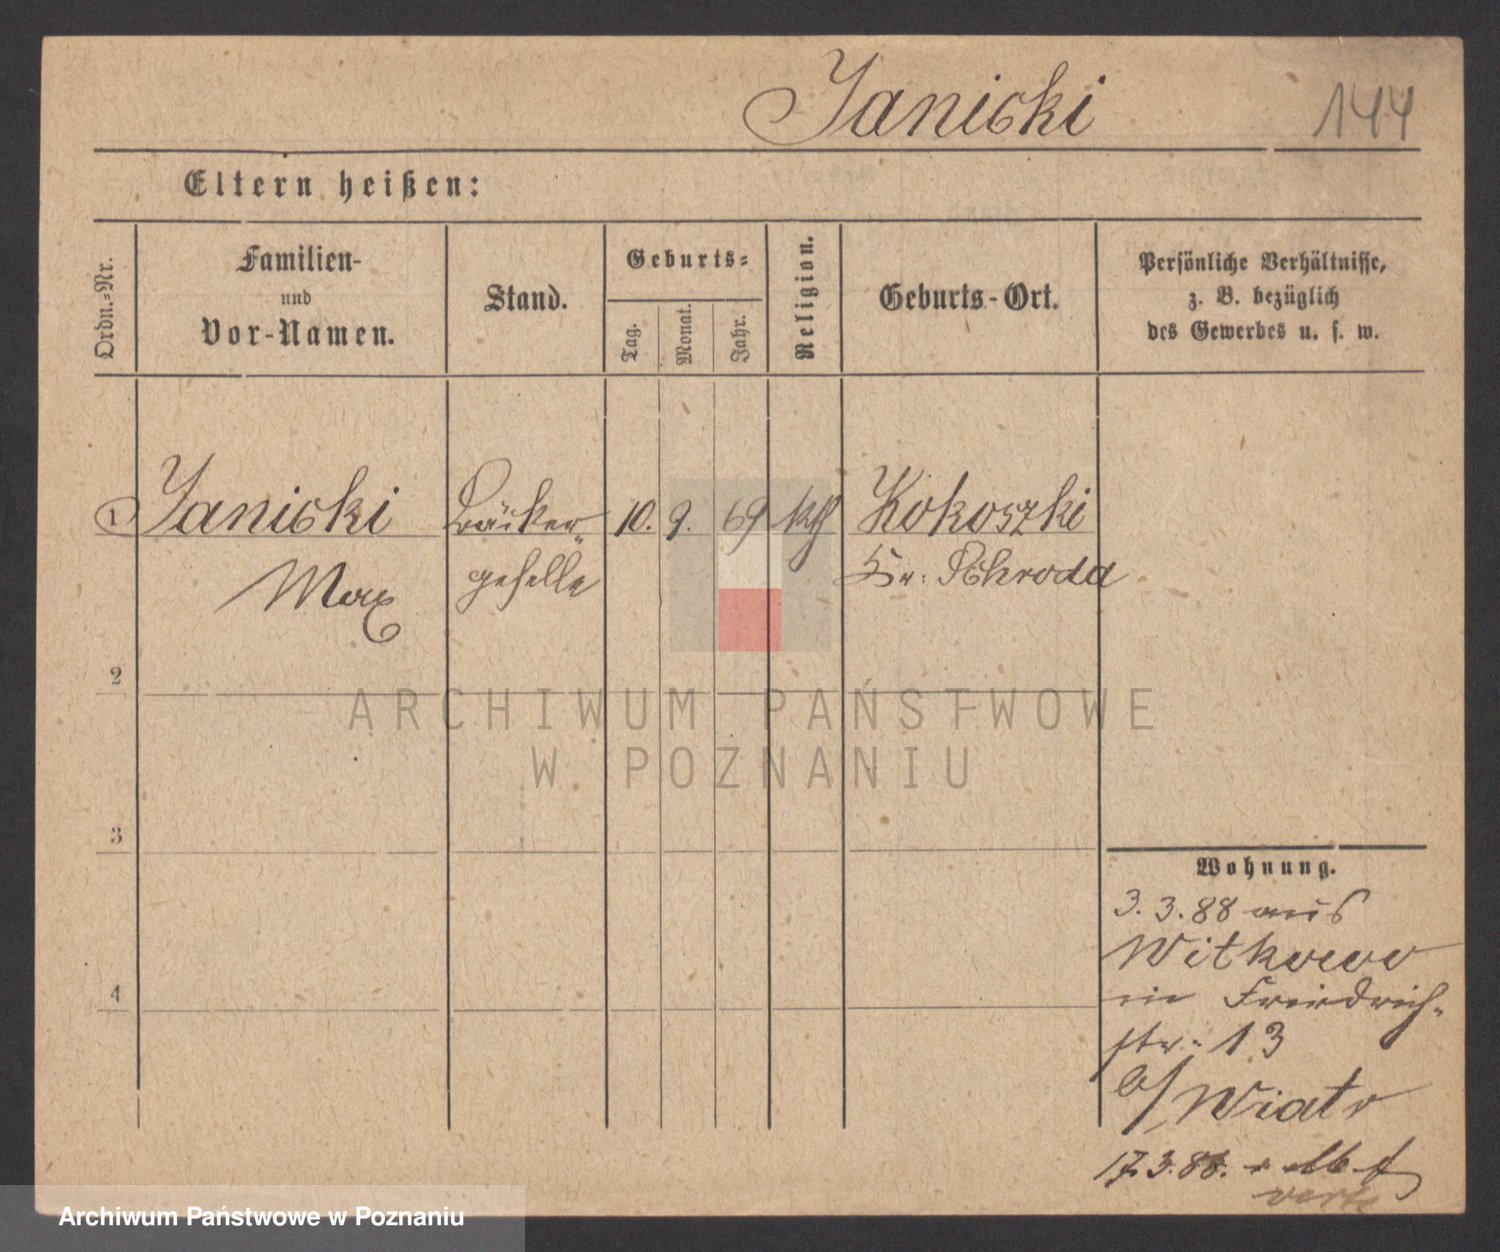 Janicki 144
Eltern heißen:
Ordn.=Nr.
Familien-
und
Vor-Namen.
Stand.
Geburts=
Tag.
Monat.
Jahr.
Religion.
Geburts-Ort.
Persönliche Verhältnisse,
z. B. bezüglich
des Gewerbes u. s. w.
1 Janicki Bäcker 10. 9. 69 kth Kokoszki
Max geselle Kr. Schroda
2
3
4
Wohnung.
3. 3. 88 aus
Witkowo
in Friedrich-
str. 13
b/ Wiatr
17. 3. 88.
ARCHIWUM PAŃSTWOWE
W POZNANIU
Archiwum Państwowe w Poznaniu